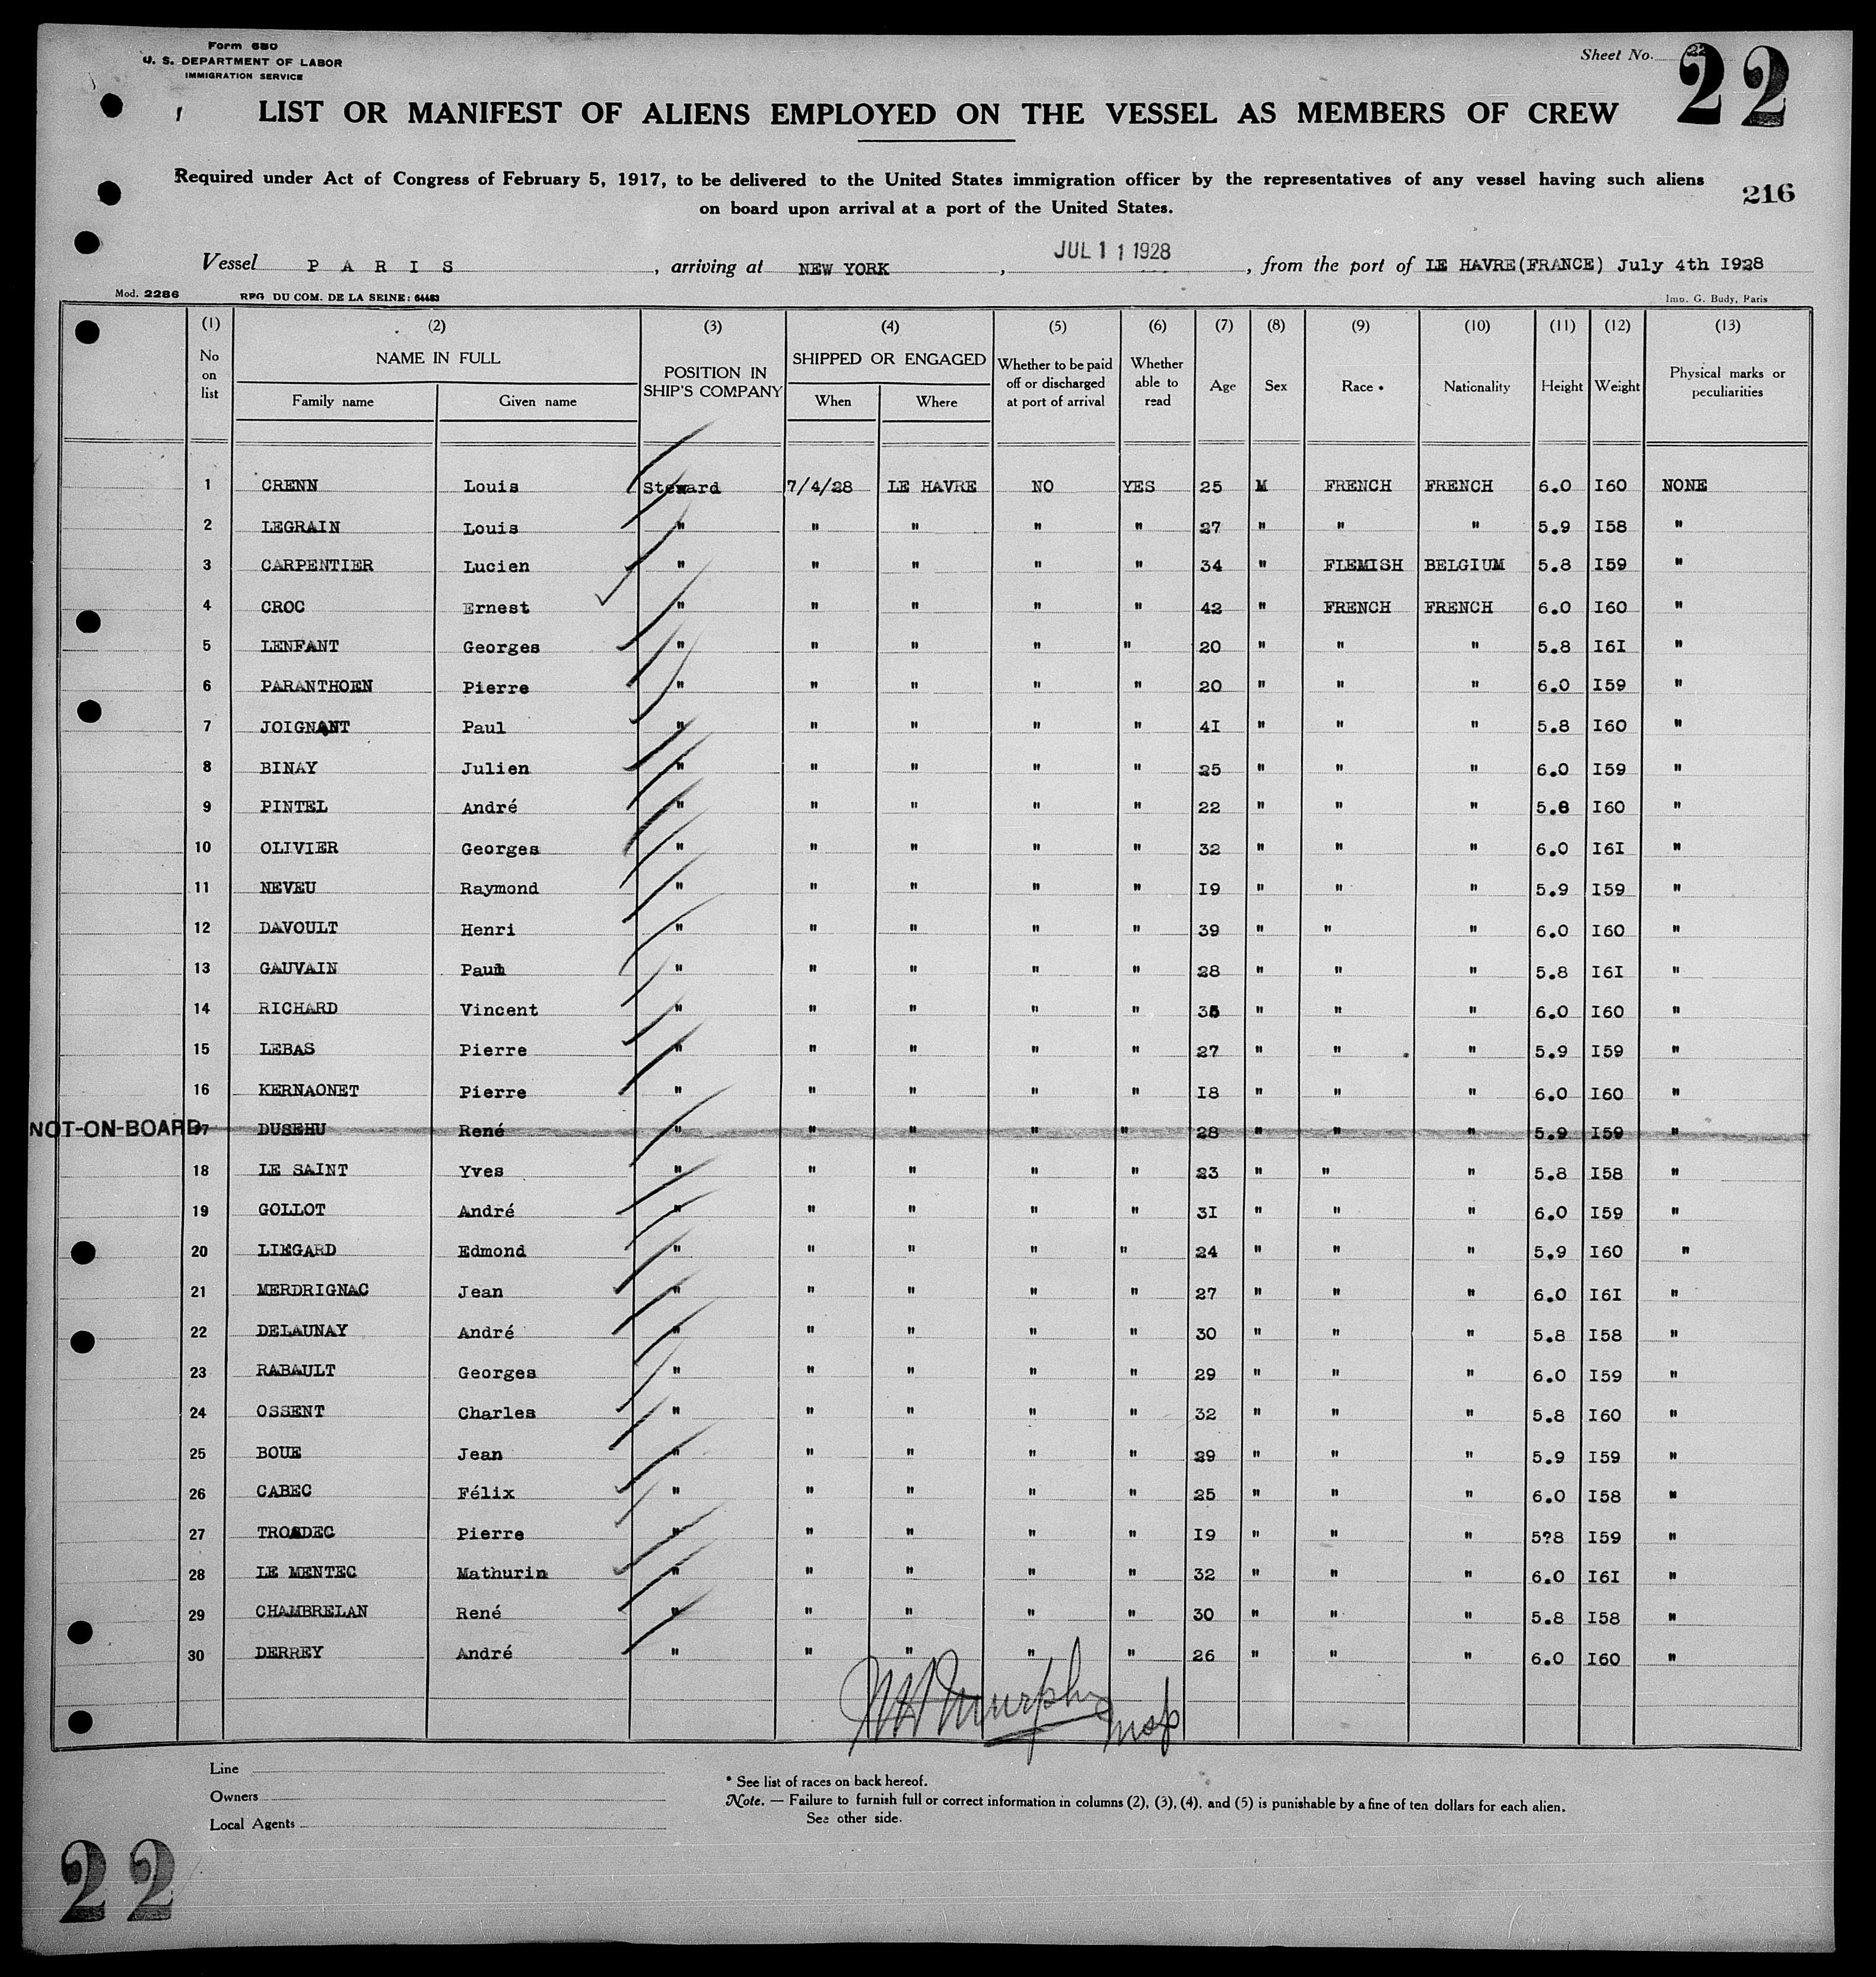 Form 680
U. S. DEPARTMENT OF LABOR
IMMIGRATION SERVICE
Sheet No. 22
22
LIST OR MANIFEST OF ALIENS EMPLOYED ON THE VESSEL AS MEMBERS OF CREW
Required under Act of Congress of February 5, 1917, to be delivered to the United States immigration officer by the representatives of any vessel having such aliens
on board upon arrival at a port of the United States.
216
Vessel P A R I S , arriving at NEW YORK , JUL 11 1928 , from the port of LE HAVRE(FRANCE) July 4th I928
Mod. 2286 RPG DU COM. DE LA SEINE: 64483 Imp. G. Budy, Paris
(1) (2) (3) (4) (5) (6) (7) (8) (9) (10) (11) (12) (13)
No on list NAME IN FULL Family name Given name POSITION IN SHIP'S COMPANY SHIPPED OR ENGAGED When Where Whether to be paid off or discharged at port of arrival Whether able to read Age Sex Race * Nationality Height Weight Physical marks or peculiarities
1 CRENN Louis Steward 7/4/28 LE HAVRE NO YES 25 M FRENCH FRENCH 6.0 I60 NONE
2 LEGRAIN Louis " " " " " 27 " " " 5.9 I58 "
3 CARPENTIER Lucien " " " " " 34 " FLEMISH BELGIUM 5.8 I59 "
4 CROC Ernest " " " " " 42 " FRENCH FRENCH 6.0 I60 "
5 LENFANT Georges " " " " " 20 " " " 5.8 I6I "
6 PARANTHOEN Pierre " " " " " 20 " " " 6.0 I59 "
7 JOIGNANT Paul " " " " " 4I " " " 5.8 I60 "
8 BINAY Julien " " " " " 25 " " " 6.0 I59 "
9 PINTEL André " " " " " 22 " " " 5.8 I60 "
10 OLIVIER Georges " " " " " 32 " " " 6.0 I6I "
11 NEVEU Raymond " " " " " I9 " " " 5.9 I59 "
12 DAVOULT Henri " " " " " 39 " " " 6.0 I60 "
13 GAUVAIN Paul " " " " " 28 " " " 5.8 I6I "
14 RICHARD Vincent " " " " " " " " 6.0 I60 "
15 LEBAS Pierre " " " " " 27 " " " 5.9 I59 "
16 KERNAONET Pierre " " " " " I8 " " " 6.0 I60 "
NOT-ON-BOARD 17 DUSEHU René " " " " " 28 " " " 5.9 I59 "
18 LE SAINT Yves " " " " " 23 " " " 5.8 I58 "
19 GOLLOT André " " " " " 3I " " " 6.0 I59 "
20 LIEGARD Edmond " " " " " 24 " " " 5.9 I60 "
21 MERDRIGNAC Jean " " " " " 27 " " " 6.0 I6I "
22 DELAUNAY André " " " " " 30 " " " 5.8 I58 "
23 RABAULT Georges " " " " " 29 " " " 6.0 I59 "
24 OSSENT Charles " " " " " 32 " " " 5.8 I60 "
25 BOUE Jean " " " " " 29 " " " 5.9 I59 "
26 CABEC Félix " " " " " 25 " " " 6.0 I58 "
27 TROADEC Pierre " " " " " I9 " " " 5?8 I59 "
28 LE MENTEC Mathurin " " " " " 32 " " " 6.0 I6I "
29 CHAMBRELAN René " " " " " 30 " " " 5.8 I58 "
30 DERREY André " " " " " 26 " " " 6.0 I60 "
Murphy
Line
Owners
Local Agents
* See list of races on back hereof.
Note. — Failure to furnish full or correct information in columns (2), (3), (4), and (5) is punishable by a fine of ten dollars for each alien.
See other side.
22